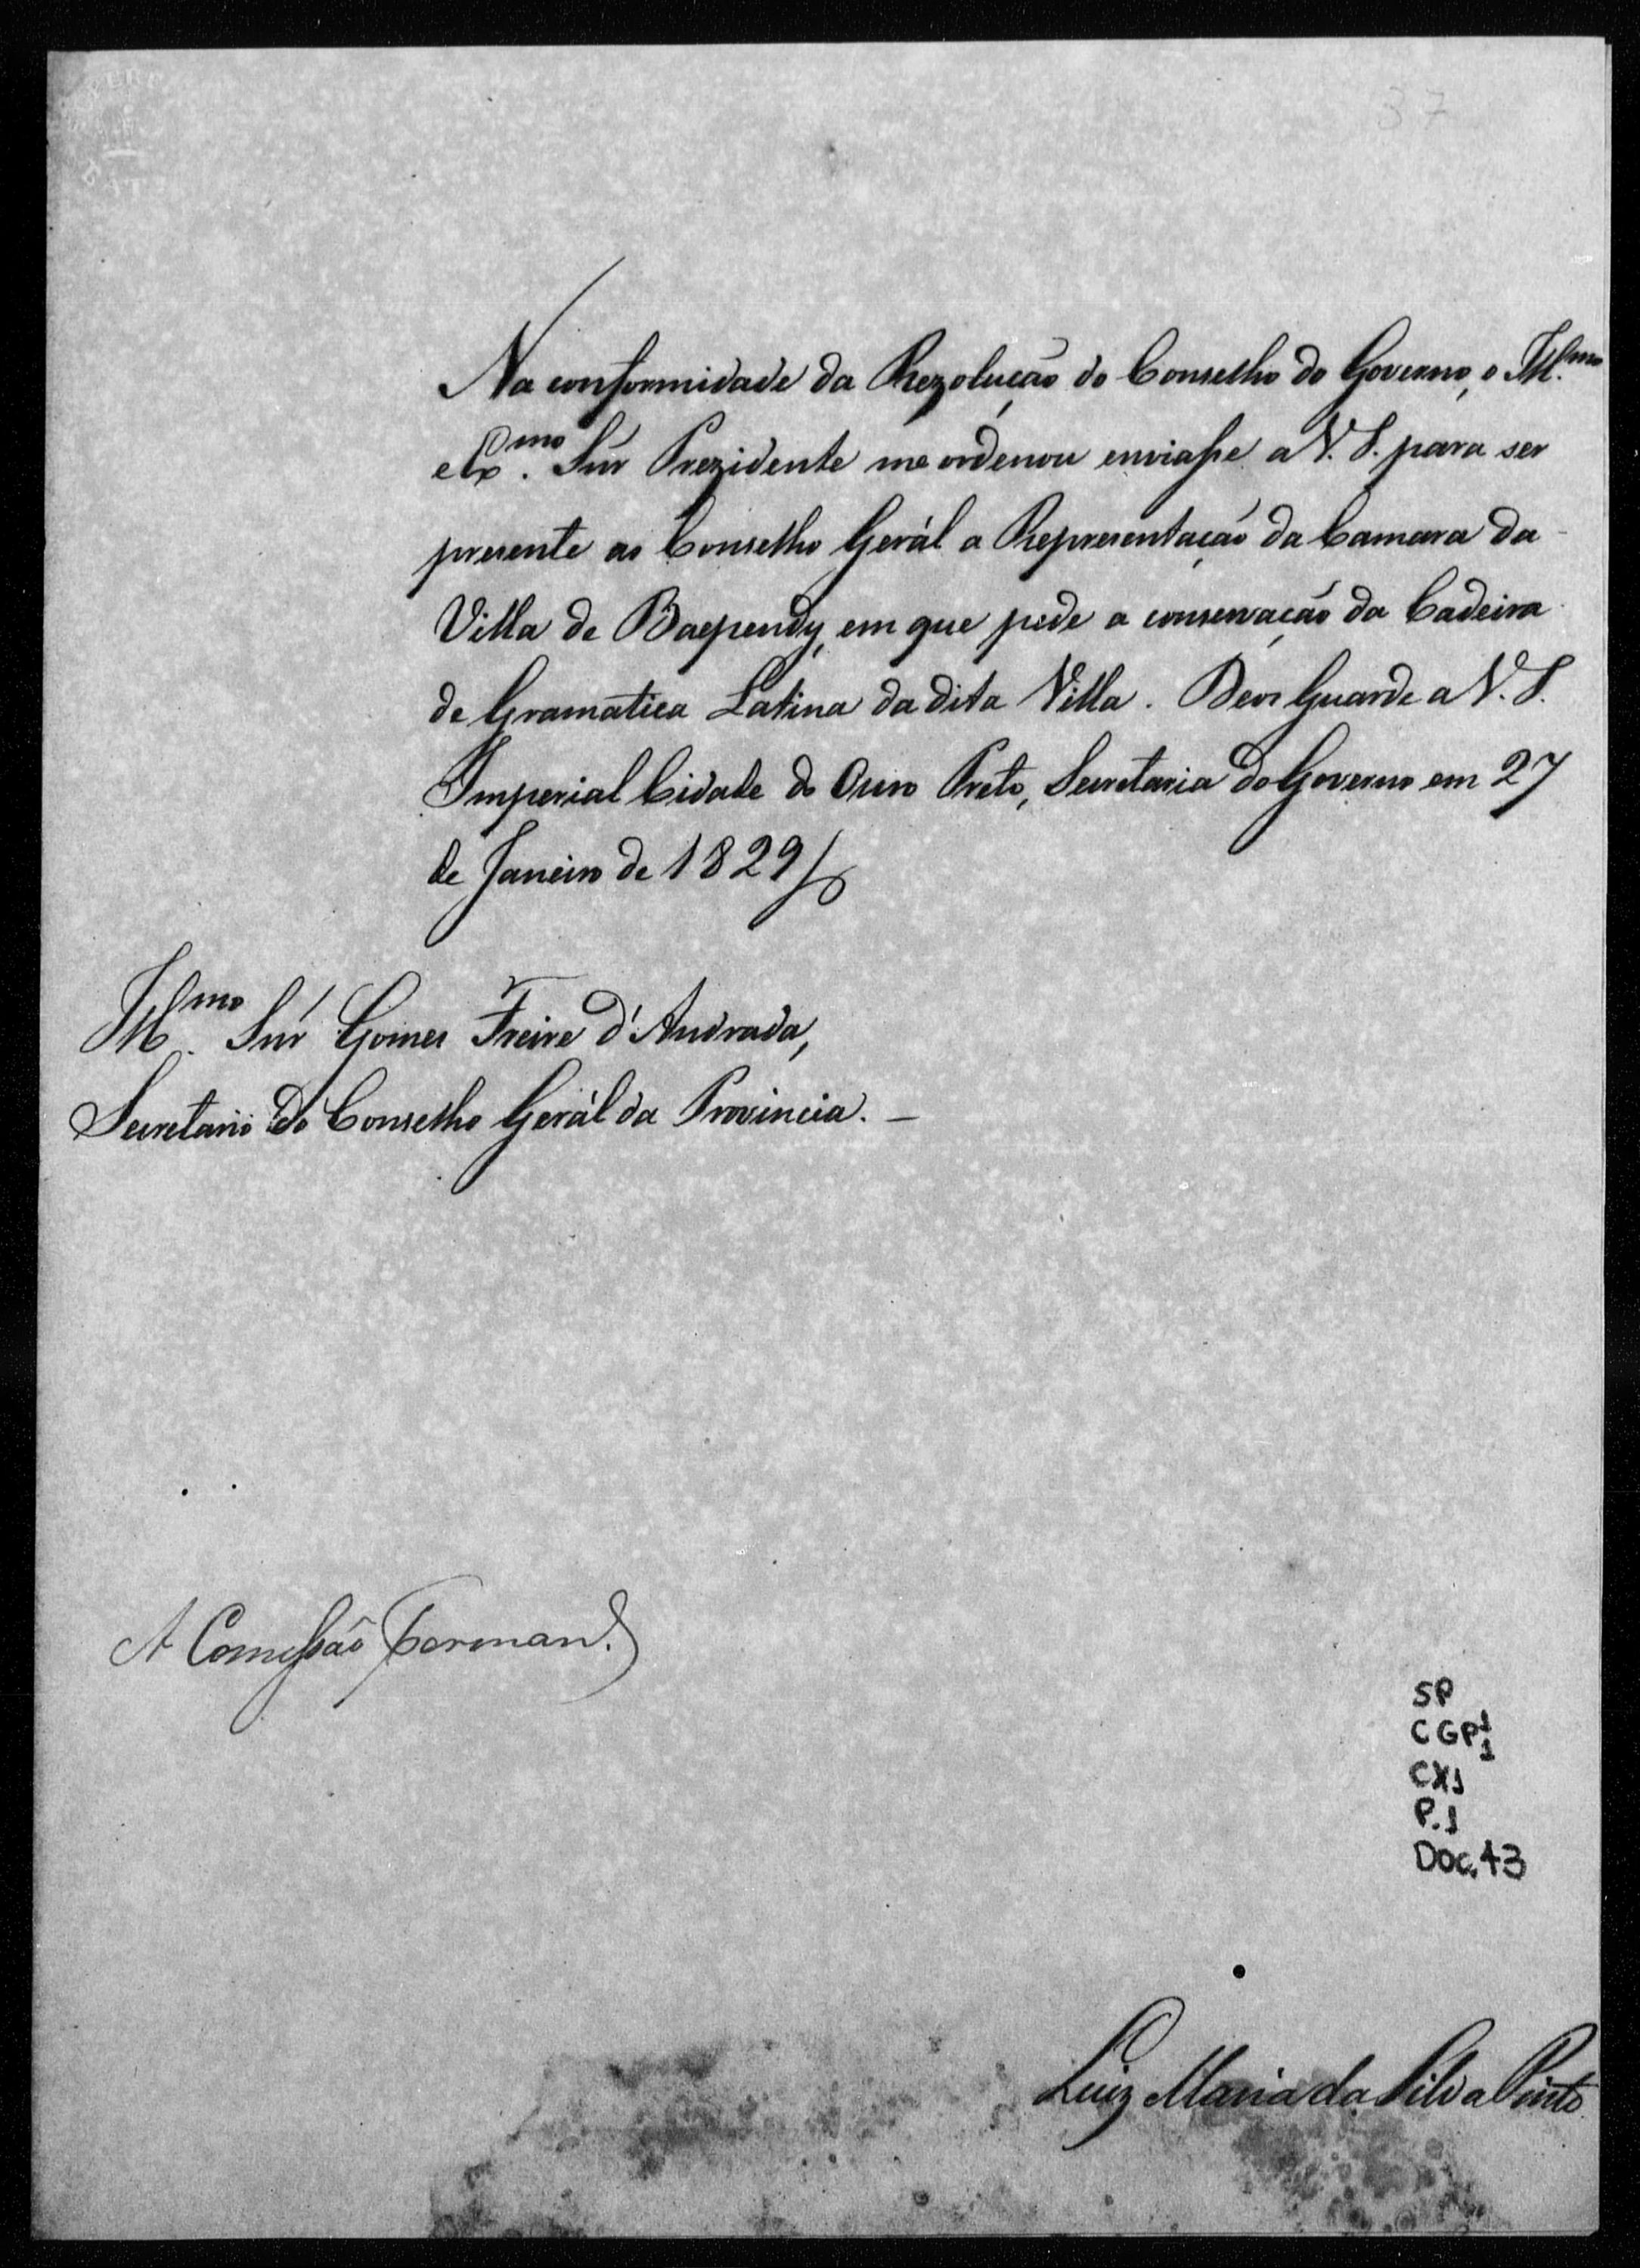 37
Na conformidade da Rezolução do Conselho do Governo, o Ill.mo
e Ex.mo Snr Prezidente me ordenou enviasse a V. S. para ser
presente ao Conselho Gerál a Representação da Camara da
Villa de Baependy, em que pede a conservação da Cadeira
de Gramatica Latina da dita Villa. Deos Guarde a V. S.
Imperial Cidade do Ouro Preto, Secretaria do Governo em 27
de Janeiro de 1829
Ill.mo Snr Gomes Freire d'Andrada,
Secretario do Conselho Gerál da Provincia. —
A Comissão Perman.
SP
CGP 1/1
CX1
P.1
Doc.43
Luiz Maria da Silva Pinto